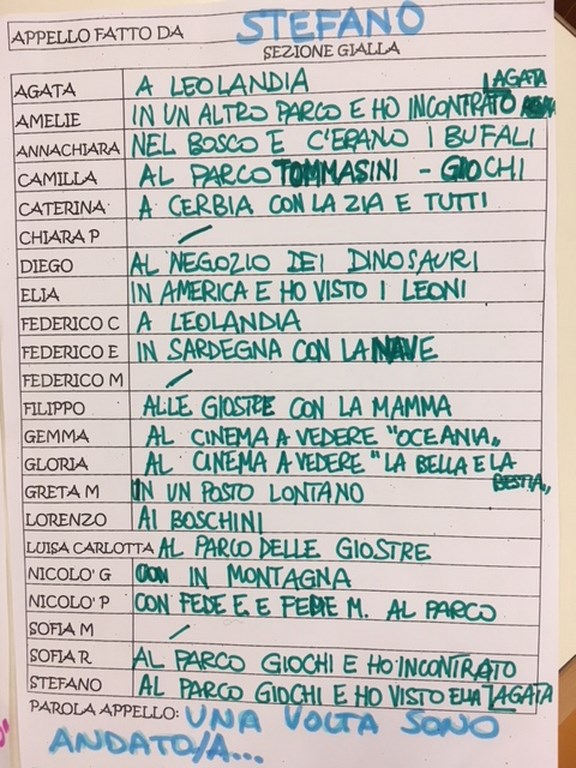 APPELLO FATTO DA STEFANO
SEZIONE GIALLA
AGATA A LEOLANDIA
AMELIE IN UN ALTRO PARCO E HO INCONTRATO L'AGATA
ANNACHIARA NEL BOSCO E C'ERANO I BUFALI
CAMILLA AL PARCO TOMMASINI - GIOCHI
CATERINA A CERBIA CON LA ZIA E TUTTI
CHIARA P /
DIEGO AL NEGOZIO DEI DINOSAURI
ELIA IN AMERICA E HO VISTO I LEONI
FEDERICO C A LEOLANDIA
FEDERICO E IN SARDEGNA CON LA NAVE
FEDERICO M /
FILIPPO ALLE GIOSTRE CON LA MAMMA
GEMMA AL CINEMA A VEDERE "OCEANIA"
GLORIA AL CINEMA A VEDERE "LA BELLA E LA BESTIA"
GRETA M IN UN POSTO LONTANO
LORENZO AI BOSCHINI
LUISA CARLOTTA AL PARCO DELLE GIOSTRE
NICOLO' G IN MONTAGNA
NICOLO' P CON FEDE E. E FEDE M. AL PARCO
SOFIA M /
SOFIA R AL PARCO GIOCHI E HO INCONTRATO L'AGATA
STEFANO AL PARCO GIOCHI E HO VISTO ELIA
PAROLA APPELLO: UNA VOLTA SONO
ANDATO/A...